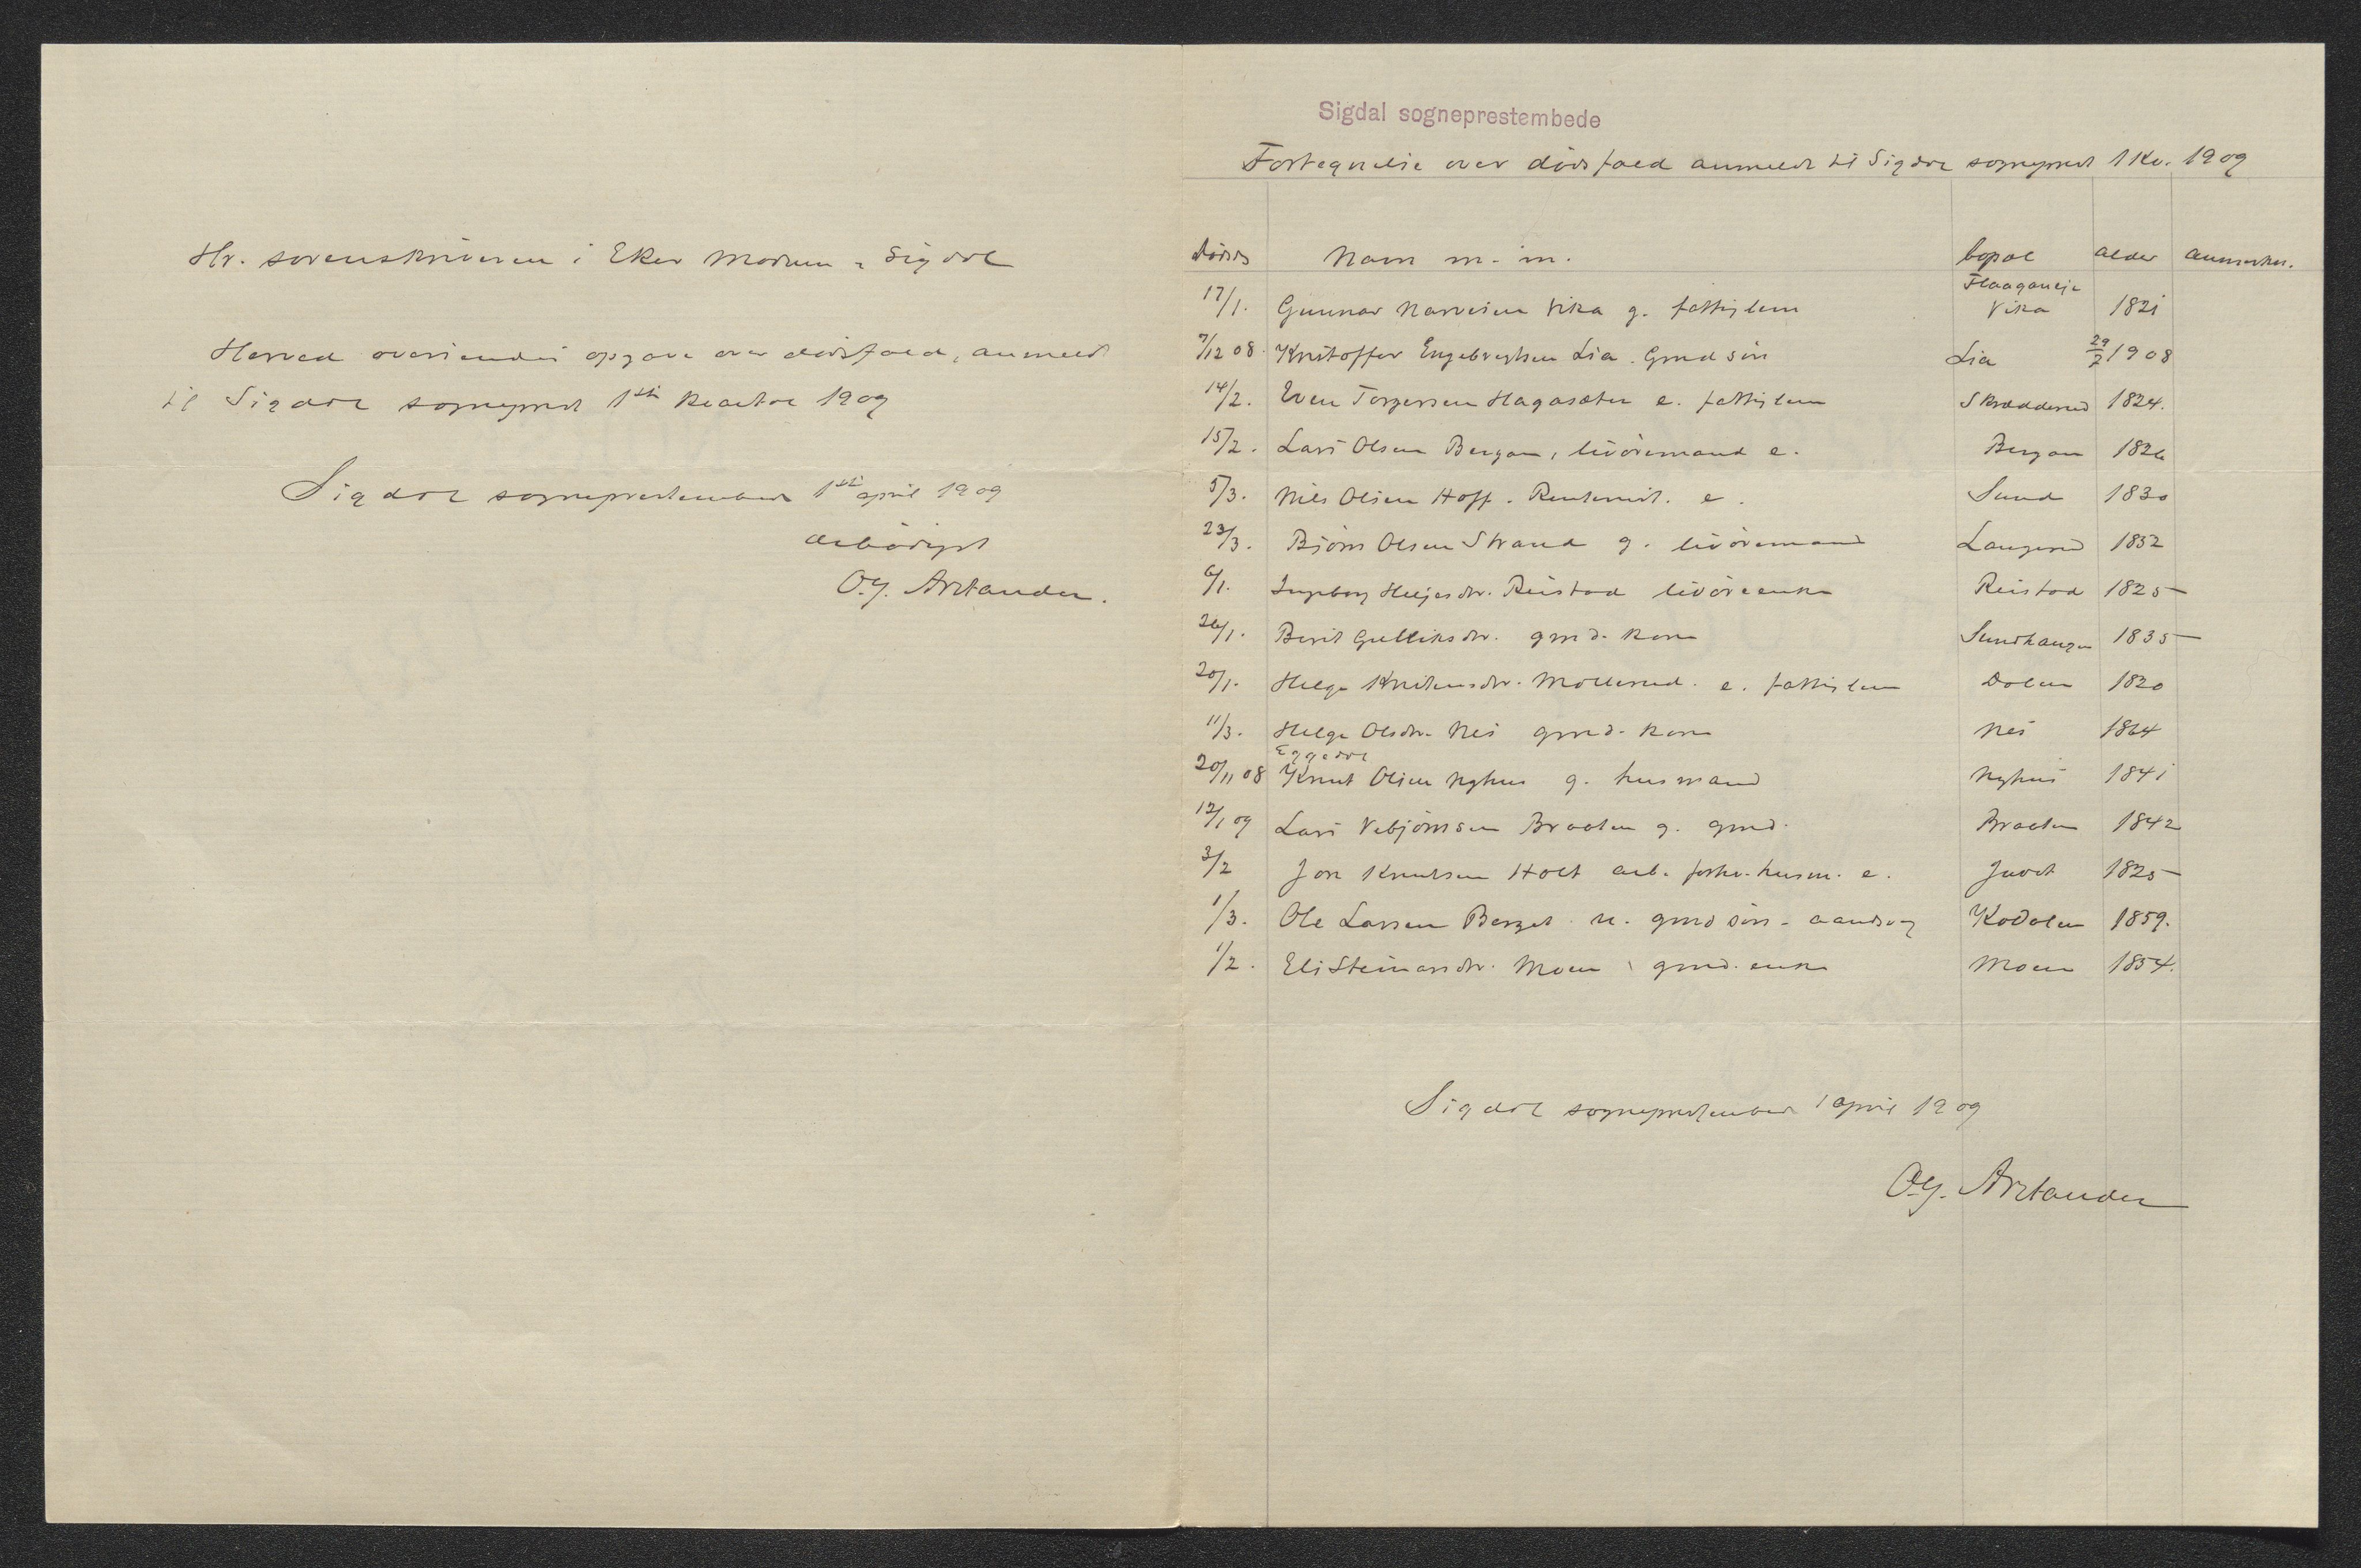 Hr. sorenskriveren i Eker Modum & Sigdal
Herved oversendes opgave over dødsfald, anmeldt
til Sigdal sogneprest 1ste kvartal 1909
Sigdal sogneprestembede 1ste april 1909
ærbødigst
O.J. Arztander.
Sigdal sogneprestembede
Fortegnelse over dødsfald anmeldt til Sigdal sogneprest 1 Kv. 1909
dødsd Navn m. m. bopæl alder anmerkn.
17/1. Gunnar Narvesen Vika g. fattiglem Flaaganeje Vika 1821
7/12 08. Kristoffer Engebregtsen Lia. Grmd søn Lia 29/7 1908
14/2. Even Torgersen Hagasæter e. fattiglem Skrædderud 1824.
15/2. Lars Olsen Bergan, livøremand e. Bergan 1826
5/3. Nils Olsen Hoff. Rentenist. e. Sund 1830
23/3. Bjørn Olsen Strand g. livøremand Langerud 1832
6/1. Ingeborg Helgesdtr. Reistad livøreenke Reistad 1825
26/1. Berit Gulliksdtr. grmd. kone Sundhaugen 1835
20/1. Helge Kristensdtr. Møllerud. e. fattiglem Dolen 1820
11/3. Helge Olsdtr. Nes grmd. kone Nes 1864
Eggedal
20/11 08 Knut Olsen Nyhus g. husmand Nyhus 1841
12/1 09 Lars Vebjørnsen Braaten g. grmd. Braaten 1842
3/2 Jon Knutsen Holt arb. forhv. husm. e. Juvet 1825
1/3. Ole Larsen Berget u. grmd søn - aandssvag Kodolen 1859.
1/2. Eli Steinarsdtr. Moen grmd. enke Moen 1854.
Sigdal sogneprestembede 1 april 1909
O.J. Arztander